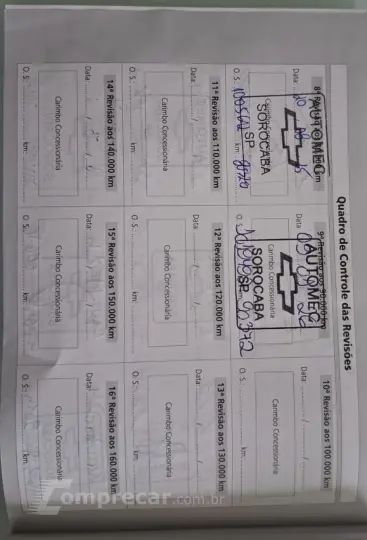 Quadro de Controle das Revisões
8ª Revisão
km
Data:
AUTOMEC
Carimbo Concessionária
SOROCABA
SP
O.S.:
km:
9ª Revisão aos 90.000 km
Data:
AUTOMEC
Carimbo Concessionária
SOROCABA
SP
O.S.:
10ª Revisão aos 100.000 km
Data: / /
Carimbo Concessionária
O.S.: km:
11ª Revisão aos 110.000 km
Data: / /
Carimbo Concessionária
O.S.: km:
12ª Revisão aos 120.000 km
Data: / /
Carimbo Concessionária
O.S.: km:
13ª Revisão aos 130.000 km
Data: / /
Carimbo Concessionária
O.S.: km:
14ª Revisão aos 140.000 km
Data: / /
Carimbo Concessionária
O.S.: km:
15ª Revisão aos 150.000 km
Data: / /
Carimbo Concessionária
O.S.: km:
16ª Revisão aos 160.000 km
Data: / /
Carimbo Concessionária
O.S.: km:
Comprecar.com.br